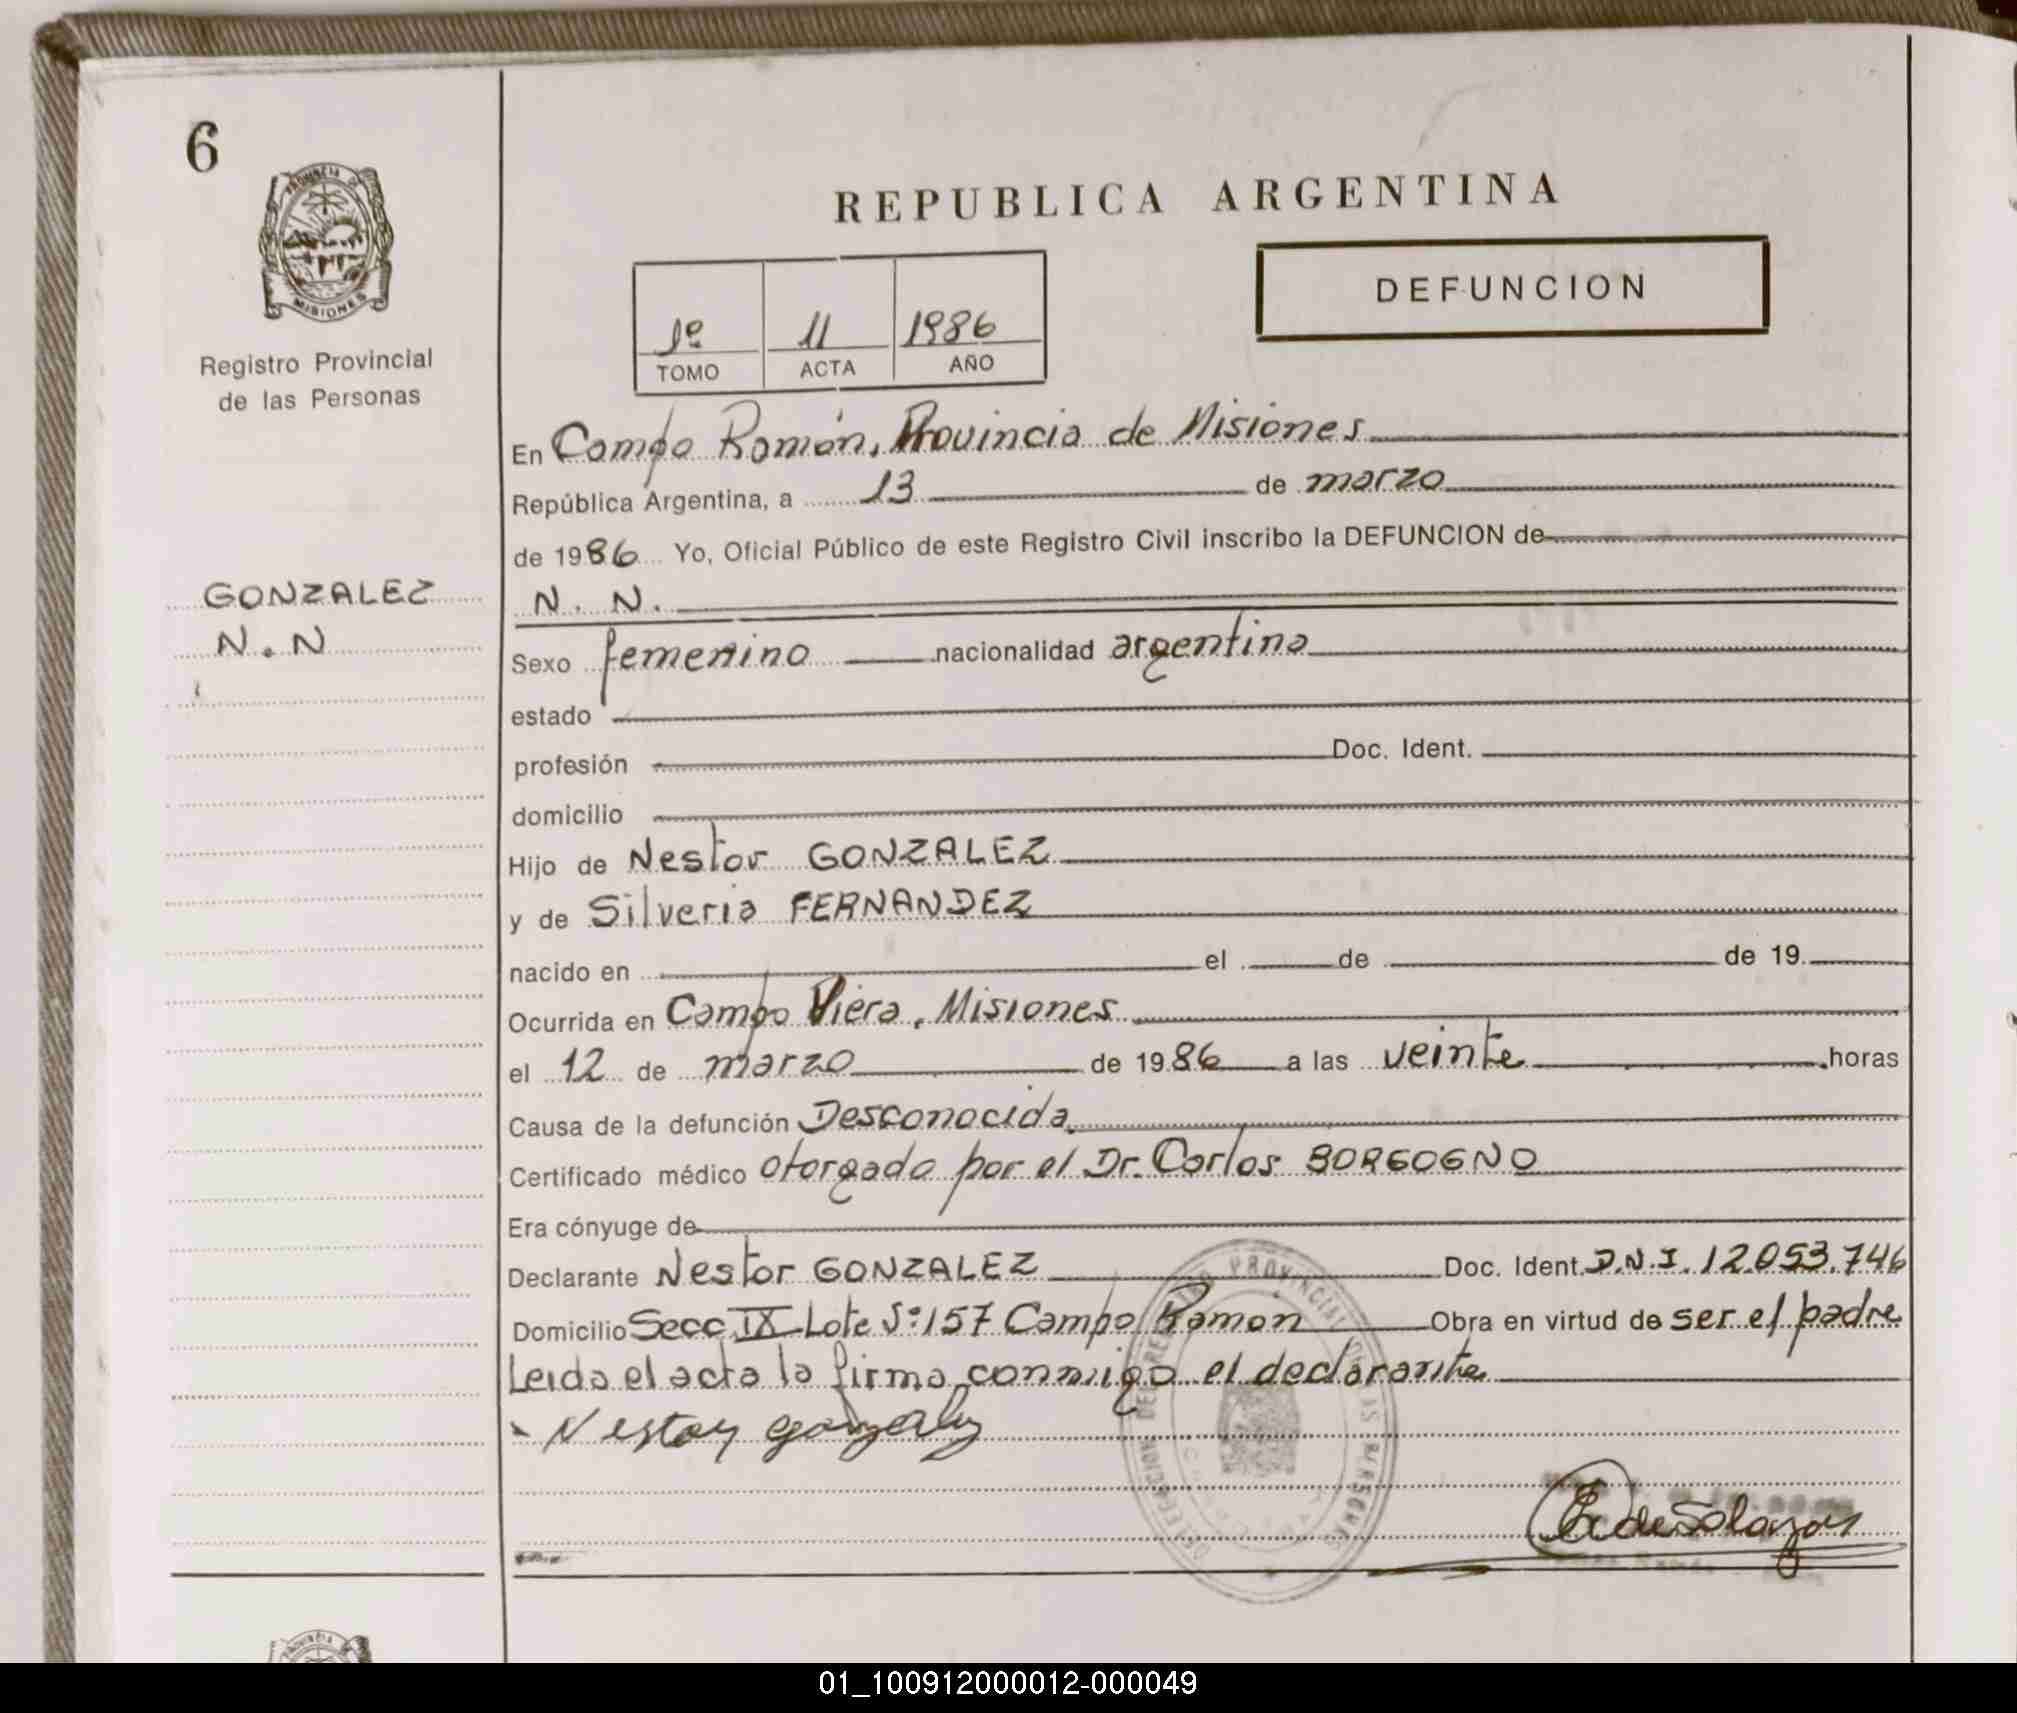 6
PROVINCIA DE
MISIONES
Registro Provincial
de las Personas
GONZALEZ
N. N
REPUBLICA ARGENTINA
1º 11 1986
TOMO ACTA AÑO
DEFUNCION
En Campo Ramón, Provincia de Misiones
República Argentina, a 13 de marzo
de 1986 Yo, Oficial Público de este Registro Civil inscribo la DEFUNCION de
N. N.
Sexo femenino nacionalidad argentina
estado
profesión Doc. Ident.
domicilio
Hijo de Nestor GONZALEZ
y de Silveria FERNANDEZ
nacido en el de de 19
Ocurrida en Campo Viera, Misiones
el 12 de marzo de 1986 a las veinte horas
Causa de la defunción Desconocida
Certificado médico otorgado por el Dr. Carlos BORGOGNO
Era cónyuge de
Declarante Nestor GONZALEZ Doc. Ident. D.N.I. 12.053.746
Domicilio Secc IX Lote Nº 157 Campo Ramon Obra en virtud de ser el padre
Leida el acta la firma conmigo el declarante
Nestor Gonzalez
de Solazar
PROVINCIA
01_100912000012-000049